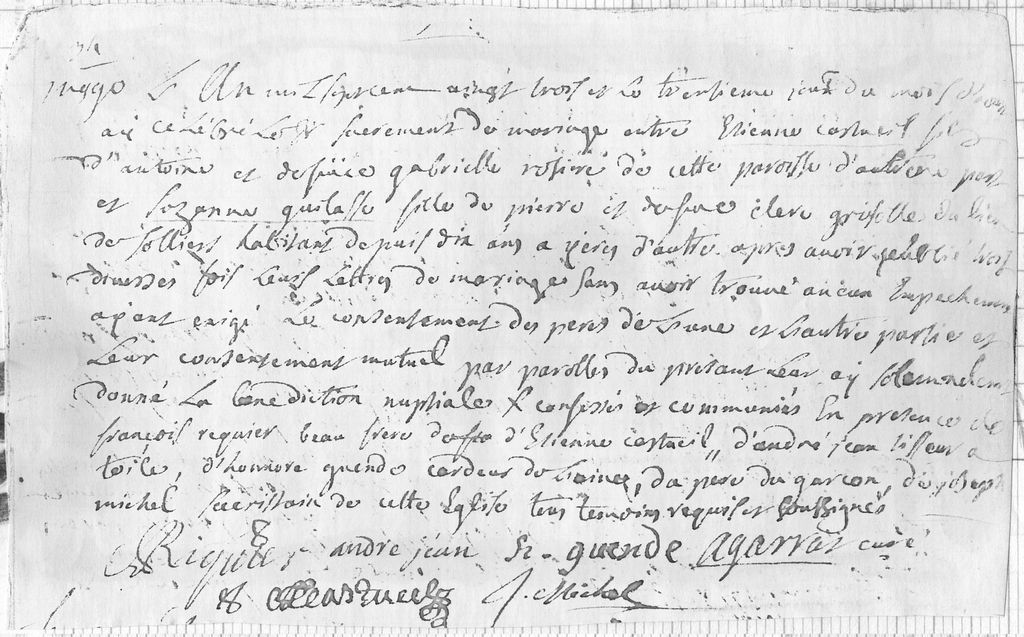 L'An mil sept cent vingt trois et le trentieme jour du mois
ay celebré le st sacrement de mariage entre Etienne castueil fils
d'antoine et defuncte gabrielle rosiere de cette paroisse d'autre part
et sozanne guilasse fille de pierre et defuncte clere grisolle du lieu
de solliers habitant depuis dix ans a yeres d'autre apres avoir publié trois
diverses fois leurs lettres de mariage sans avoir trouvé aucun Empechement
ayant exigé le consentement des peres de L'une et L'autre partie et
Leur consentement mutuel par parolles du present Leur ay solemnelem
donné La benediction nuptiale confessés et communiés En presence de
francois requier beau frere d'Etienne castueil, d'andré jean tisseur a
toile, d'honnore guende cardeur de Laine, du pere du garcon, de joseph
michel sacristain de cette Eglise tous temoins requis et soussignés
andre jean h. guende agarrat curé
J. Michel